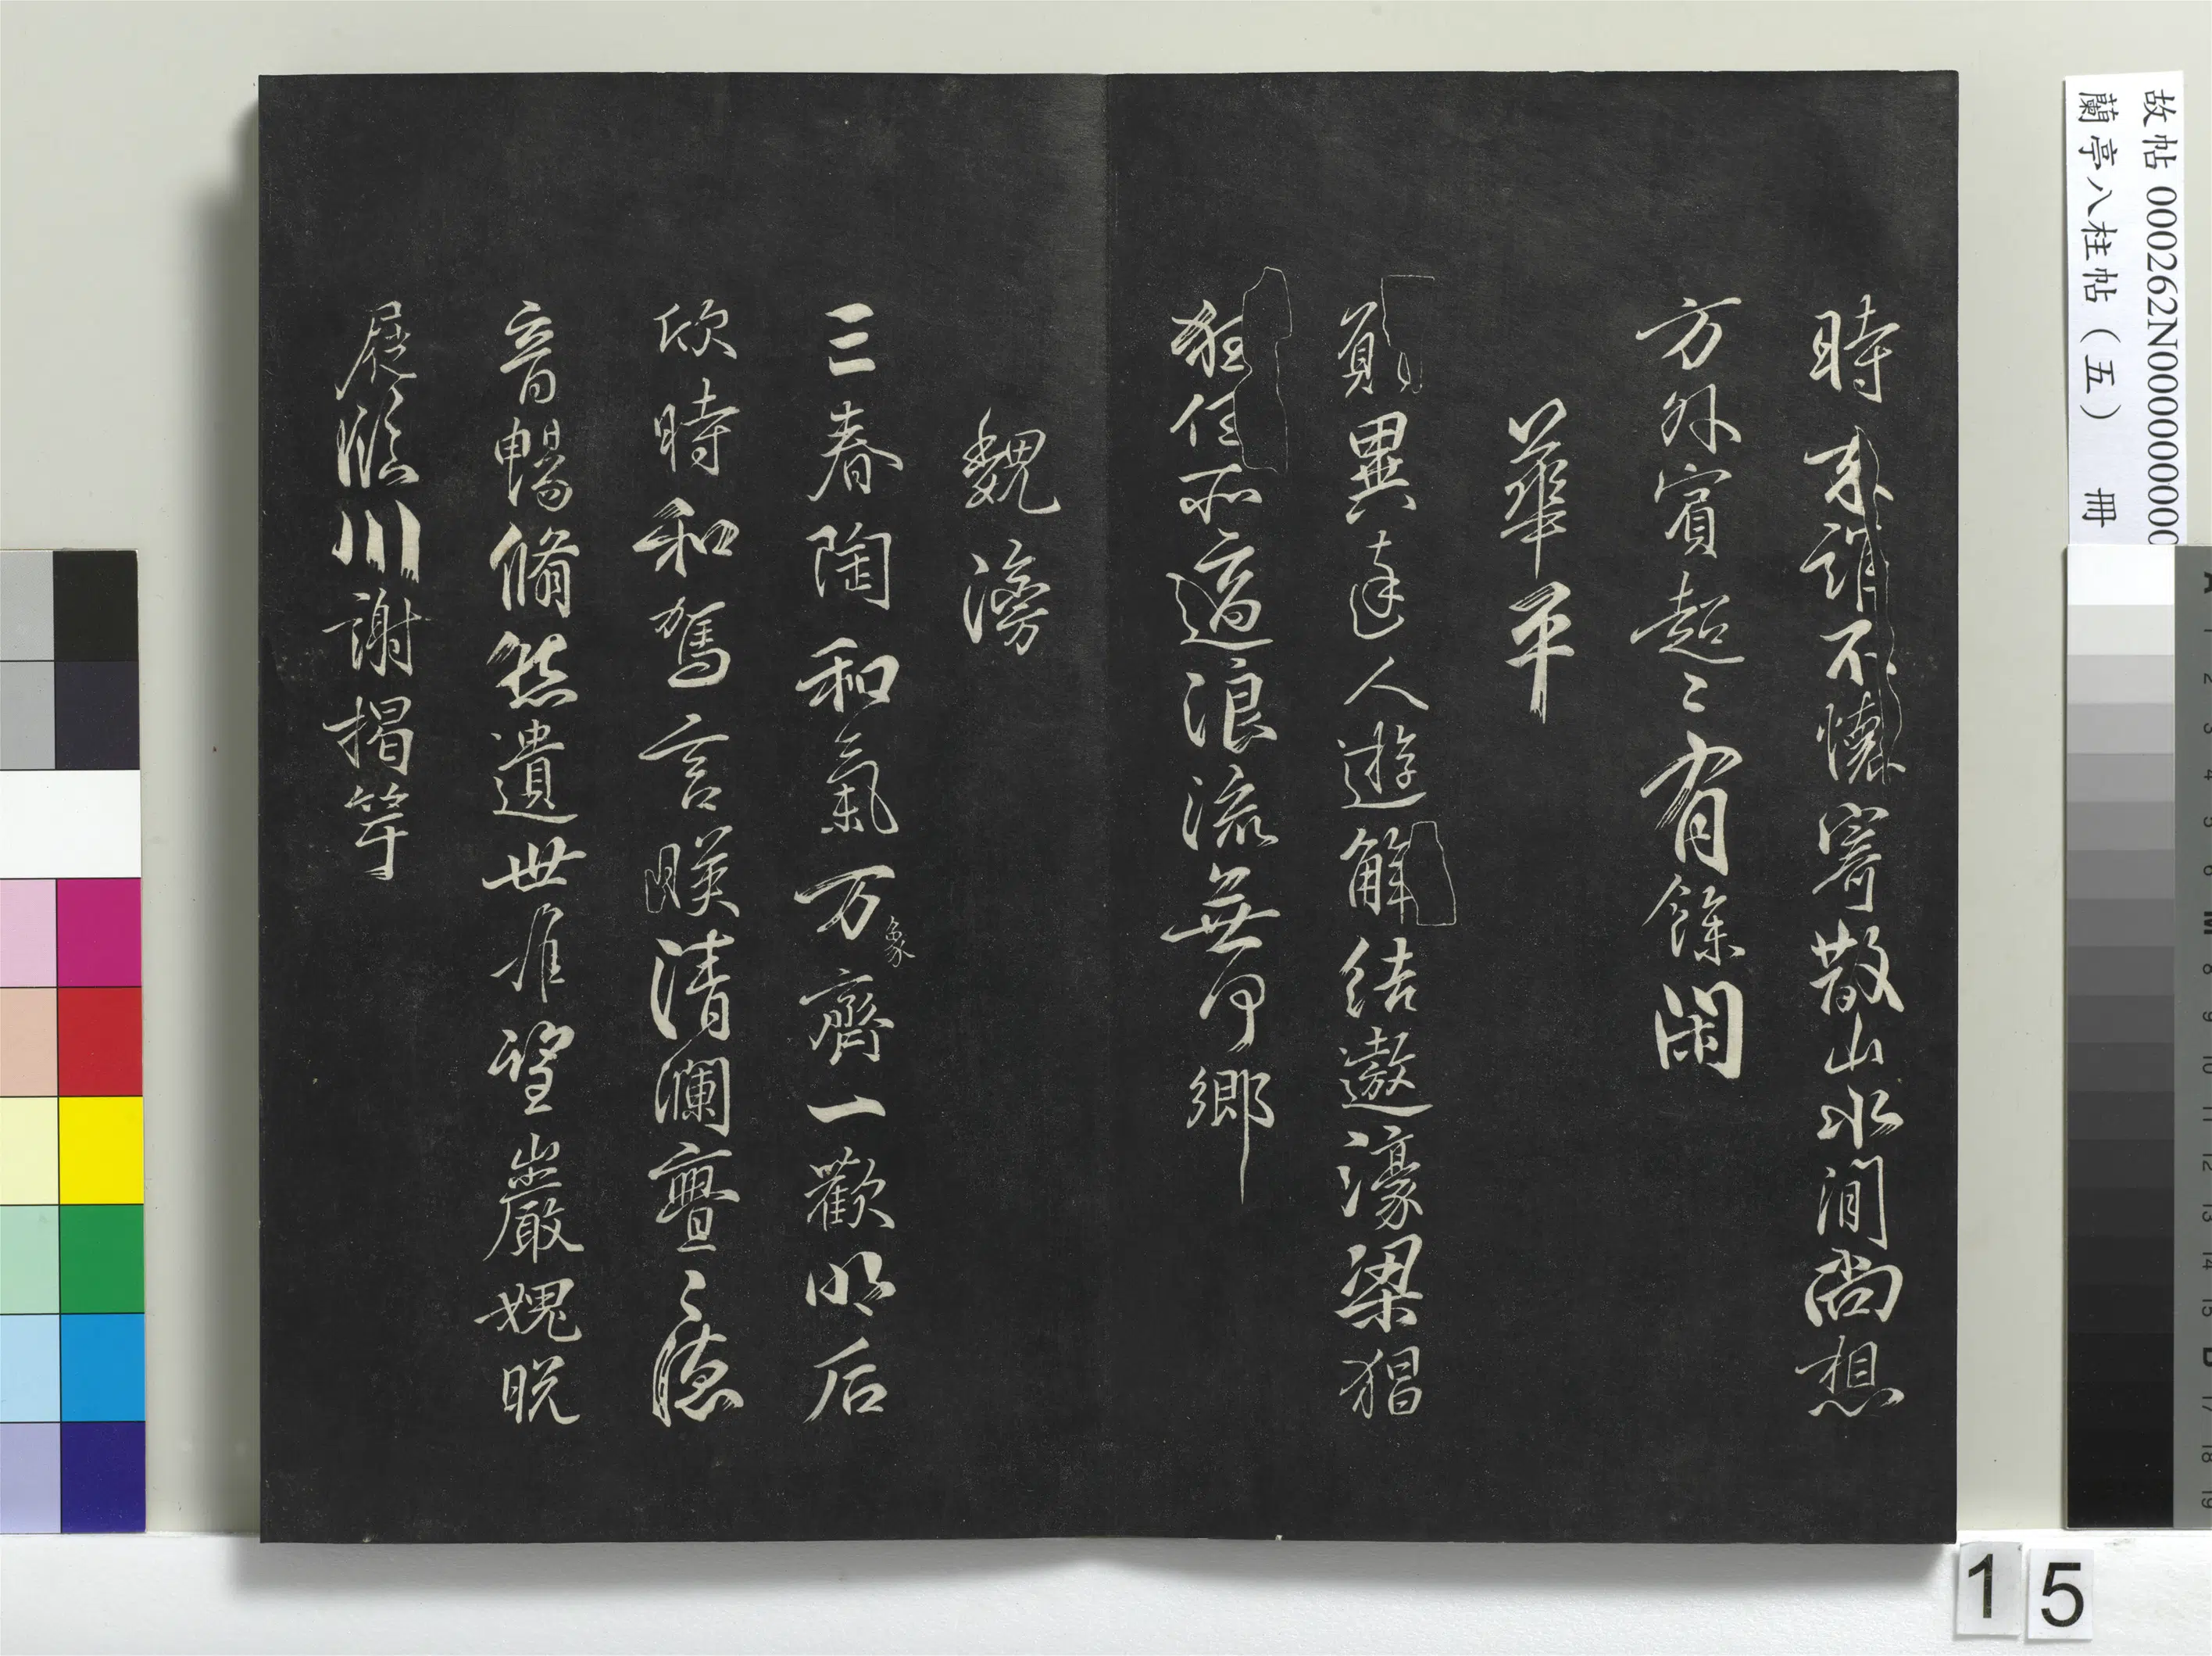 時来誰不懷寄散山水間尚想
方外賓超〻有餘閑
華平
願異達人遊解結遨濠梁猖
狂任所適浪流無何鄉
魏滂
三春陶和氣万象齊一歡明后
欣時和駕言暎清瀾亹〻德
音暢脩然遺世難望巖愧脫
屣臨川謝揭竿
故帖 000262N000000000
蘭亭八柱帖（五） 冊
15